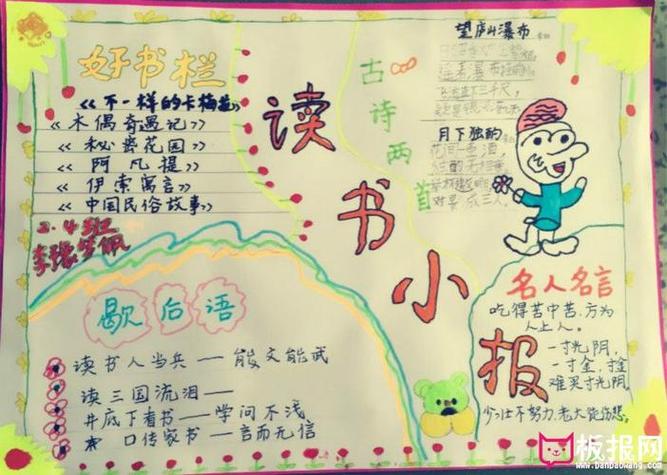 好书栏
《不一样的卡梅拉》
《木偶奇遇记》
《秘密花园》
《阿凡提》
《伊索寓言》
《中国民俗故事》
2.4班
读书小报
古诗两首
望庐山瀑布
飞流直下三千尺
月下独酌
花间一壶酒
对影成三人。
歇后语
读书人当兵——能文能武
读三国流泪——
井底下看书——学问不浅
口传家书——言而无信
名人名言
吃得苦中苦,方为
人上人。
一寸光阴,
一寸金,寸金
难买寸光阴。
少壮不努力,老大徒伤悲。
板报网
www.banbaowang.com